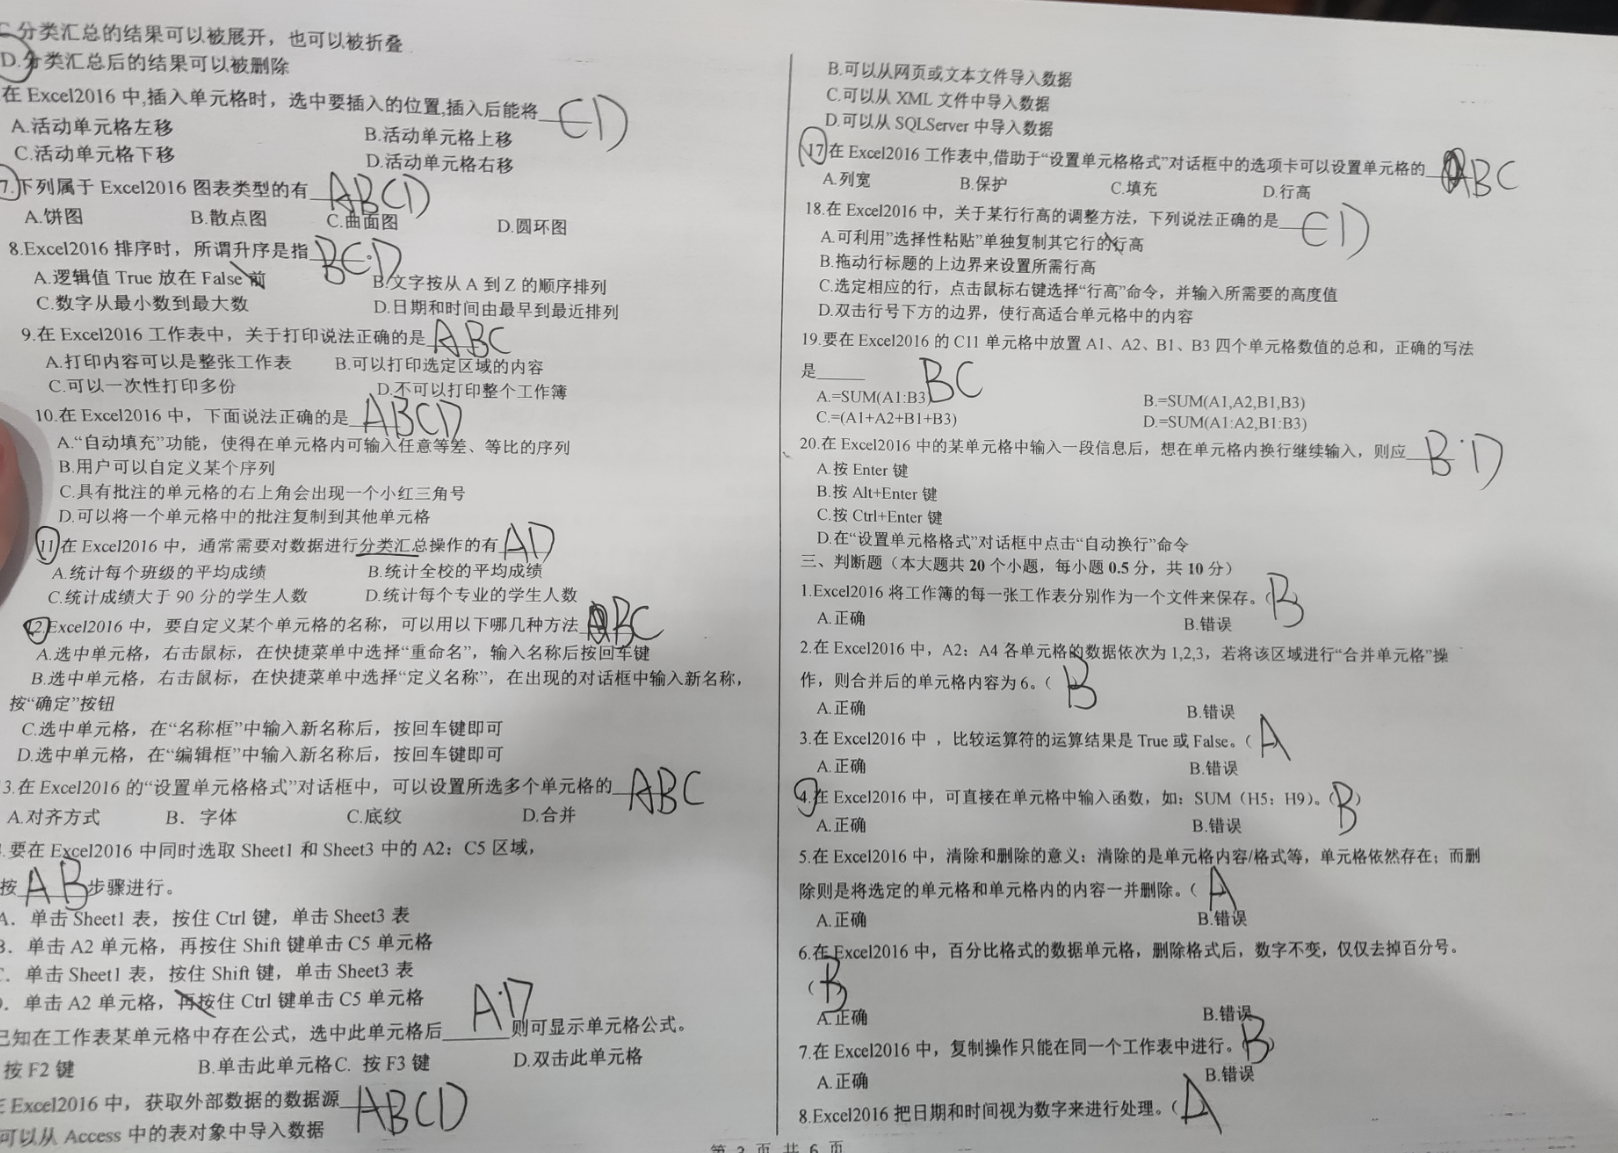 C.分类汇总的结果可以被展开，也可以被折叠
D.分类汇总后的结果可以被删除
在 Excel2016 中,插入单元格时，选中要插入的位置,插入后能将______ CD
A.活动单元格左移 B.活动单元格上移
C.活动单元格下移 D.活动单元格右移
7.下列属于 Excel2016 图表类型的有______ ABCD
A.饼图 B.散点图 C.曲面图 D.圆环图
8.Excel2016 排序时，所谓升序是指______ BCD
A.逻辑值 True 放在 False 前 B.文字按从 A 到 Z 的顺序排列
C.数字从最小数到最大数 D.日期和时间由最早到最近排列
9.在 Excel2016 工作表中，关于打印说法正确的是______ ABC
A.打印内容可以是整张工作表 B.可以打印选定区域的内容
C.可以一次性打印多份 D.不可以打印整个工作簿
10.在 Excel2016 中，下面说法正确的是______ ABCD
A.“自动填充”功能，使得在单元格内可输入任意等差、等比的序列
B.用户可以自定义某个序列
C.具有批注的单元格的右上角会出现一个小红三角号
D.可以将一个单元格中的批注复制到其他单元格
11.在 Excel2016 中，通常需要对数据进行分类汇总操作的有______ AD
A.统计每个班级的平均成绩 B.统计全校的平均成绩
C.统计成绩大于 90 分的学生人数 D.统计每个专业的学生人数
12.Excel2016 中，要自定义某个单元格的名称，可以用以下哪几种方法______ BC
A.选中单元格，右击鼠标，在快捷菜单中选择“重命名”，输入名称后按回车键
B.选中单元格，右击鼠标，在快捷菜单中选择“定义名称”，在出现的对话框中输入新名称，
按“确定”按钮
C.选中单元格，在“名称框”中输入新名称后，按回车键即可
D.选中单元格，在“编辑框”中输入新名称后，按回车键即可
3.在 Excel2016 的“设置单元格格式”对话框中，可以设置所选多个单元格的______ ABC
A.对齐方式 B．字体 C.底纹 D.合并
.要在 Excel2016 中同时选取 Sheet1 和 Sheet3 中的 A2：C5 区域，
按______ AB 步骤进行。
A．单击 Sheet1 表，按住 Ctrl 键，单击 Sheet3 表
B．单击 A2 单元格，再按住 Shift 键单击 C5 单元格
C．单击 Sheet1 表，按住 Shift 键，单击 Sheet3 表
D．单击 A2 单元格，再按住 Ctrl 键单击 C5 单元格
已知在工作表某单元格中存在公式，选中此单元格后______ AD 则可显示单元格公式。
按 F2 键 B.单击此单元格 C. 按 F3 键 D.双击此单元格
在 Excel2016 中，获取外部数据的数据源______ ABCD
可以从 Access 中的表对象中导入数据
B.可以从网页或文本文件导入数据
C.可以从 XML 文件中导入数据
D.可以从 SQLServer 中导入数据
17.在 Excel2016 工作表中,借助于“设置单元格格式”对话框中的选项卡可以设置单元格的______ BC
A.列宽 B.保护 C.填充 D.行高
18.在 Excel2016 中，关于某行行高的调整方法，下列说法正确的是______ CD
A.可利用”选择性粘贴”单独复制其它行的行高
B.拖动行标题的上边界来设置所需行高
C.选定相应的行，点击鼠标右键选择“行高”命令，并输入所需要的高度值
D.双击行号下方的边界，使行高适合单元格中的内容
19.要在 Excel2016 的 C11 单元格中放置 A1、A2、B1、B3 四个单元格数值的总和，正确的写法
是______ BC
A.=SUM(A1:B3) B.=SUM(A1,A2,B1,B3)
C.=(A1+A2+B1+B3) D.=SUM(A1:A2,B1:B3)
20.在 Excel2016 中的某单元格中输入一段信息后，想在单元格内换行继续输入，则应______ BD
A.按 Enter 键
B.按 Alt+Enter 键
C.按 Ctrl+Enter 键
D.在“设置单元格格式”对话框中点击“自动换行”命令
三、判断题（本大题共 20 个小题，每小题 0.5 分，共 10 分）
1.Excel2016 将工作簿的每一张工作表分别作为一个文件来保存。( B )
A.正确 B.错误
2.在 Excel2016 中，A2：A4 各单元格的数据依次为 1,2,3，若将该区域进行“合并单元格”操
作，则合并后的单元格内容为 6。( B )
A.正确 B.错误
3.在 Excel2016 中 ，比较运算符的运算结果是 True 或 False。( A )
A.正确 B.错误
4.在 Excel2016 中，可直接在单元格中输入函数，如：SUM（H5：H9)。( B )
A.正确 B.错误
5.在 Excel2016 中，清除和删除的意义：清除的是单元格内容/格式等，单元格依然存在；而删
除则是将选定的单元格和单元格内的内容一并删除。( A
A.正确 B.错误
6.在 Excel2016 中，百分比格式的数据单元格，删除格式后，数字不变，仅仅去掉百分号。
( B )
A.正确 B.错误
7.在 Excel2016 中，复制操作只能在同一个工作表中进行。( B )
A.正确 B.错误
8.Excel2016 把日期和时间视为数字来进行处理。( A )
第 3 页 共 6 页